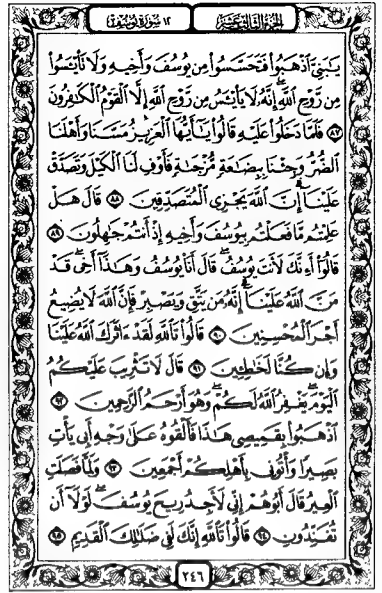 الجزء الثالث عشر
١٢ سورة يوسف
يَٰبَنِيَّ ٱذْهَبُوا۟ فَتَحَسَّسُوا۟ مِن يُوسُفَ وَأَخِيهِ وَلَا تَا۟يْـَٔسُوا۟
مِن رَّوْحِ ٱللَّهِ ۖ إِنَّهُۥ لَا يَا۟يْـَٔسُ مِن رَّوْحِ ٱللَّهِ إِلَّا ٱلْقَوْمُ ٱلْكَٰفِرُونَ
٨٧ فَلَمَّا دَخَلُوا۟ عَلَيْهِ قَالُوا۟ يَٰٓأَيُّهَا ٱلْعَزِيزُ مَسَّنَا وَأَهْلَنَا
ٱلضُّرُّ وَجِئْنَا بِبِضَٰعَةٍ مُّزْجَىٰةٍ فَأَوْفِ لَنَا ٱلْكَيْلَ وَتَصَدَّقْ
عَلَيْنَآ ۖ إِنَّ ٱللَّهَ يَجْزِى ٱلْمُتَصَدِّقِينَ ٨٨ قَالَ هَلْ
عَلِمْتُم مَّا فَعَلْتُم بِيُوسُفَ وَأَخِيهِ إِذْ أَنتُمْ جَٰهِلُونَ ٨٩
قَالُوٓا۟ أَءِنَّكَ لَأَنتَ يُوسُفُ ۖ قَالَ أَنَا۠ يُوسُفُ وَهَٰذَآ أَخِى ۖ قَدْ
مَنَّ ٱللَّهُ عَلَيْنَآ ۖ إِنَّهُۥ مَن يَتَّقِ وَيَصْبِرْ فَإِنَّ ٱللَّهَ لَا يُضِيعُ
أَجْرَ ٱلْمُحْسِنِينَ ٩٠ قَالُوا۟ تَٱللَّهِ لَقَدْ ءَاثَرَكَ ٱللَّهُ عَلَيْنَا
وَإِن كُنَّا لَخَٰطِـِٔينَ ٩١ قَالَ لَا تَثْرِيبَ عَلَيْكُمُ
ٱلْيَوْمَ ۖ يَغْفِرُ ٱللَّهُ لَكُمْ ۖ وَهُوَ أَرْحَمُ ٱلرَّٰحِمِينَ ٩٢
ٱذْهَبُوا۟ بِقَمِيصِى هَٰذَا فَأَلْقُوهُ عَلَىٰ وَجْهِ أَبِى يَأْتِ
بَصِيرًا وَأْتُونِى بِأَهْلِكُمْ أَجْمَعِينَ ٩٣ وَلَمَّا فَصَلَتِ
ٱلْعِيرُ قَالَ أَبُوهُمْ إِنِّى لَأَجِدُ رِيحَ يُوسُفَ ۖ لَوْلَآ أَن
تُفَنِّدُونِ ٩٤ قَالُوا۟ تَٱللَّهِ إِنَّكَ لَفِى ضَلَٰلِكَ ٱلْقَدِيمِ ٩٥
٢٤٦